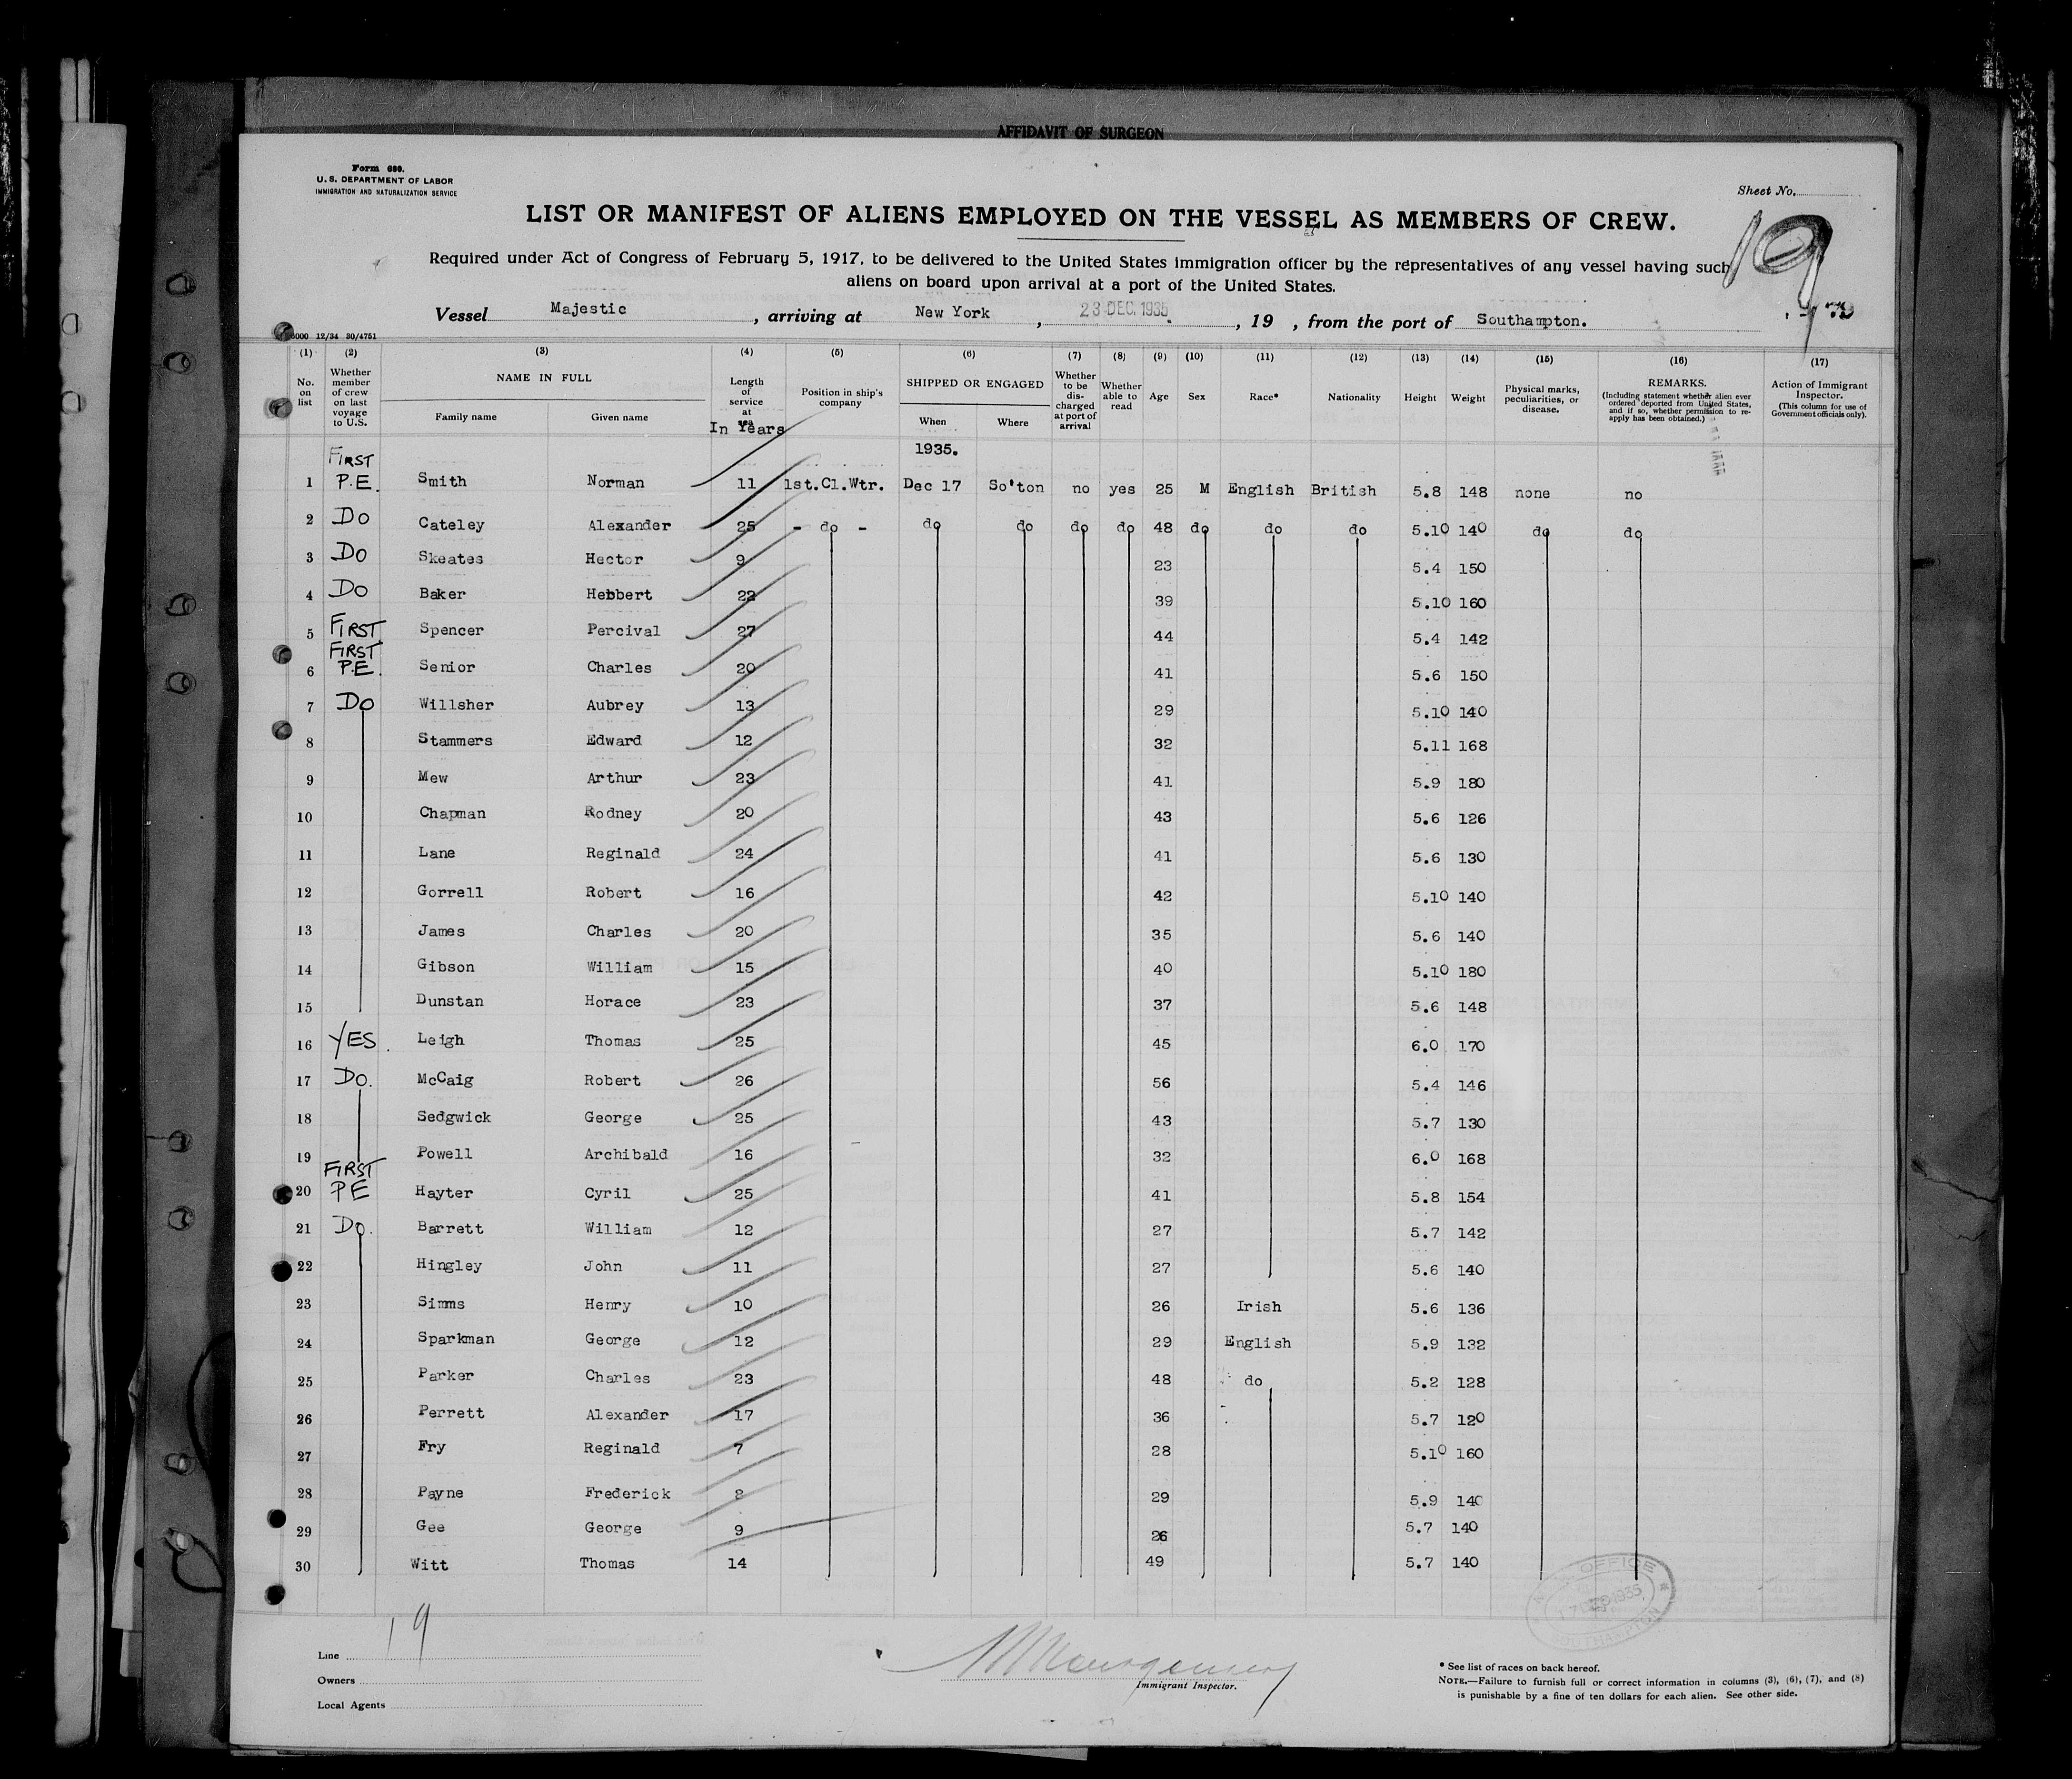 AFFIDAVIT OF SURGEON
Form 680.
U. S. DEPARTMENT OF LABOR
IMMIGRATION AND NATURALIZATION SERVICE
Sheet No.
19
LIST OR MANIFEST OF ALIENS EMPLOYED ON THE VESSEL AS MEMBERS OF CREW.
Required under Act of Congress of February 5, 1917, to be delivered to the United States immigration officer by the representatives of any vessel having such
aliens on board upon arrival at a port of the United States.
Vessel Majestic , arriving at New York , 23 DEC. 1935 , 19 , from the port of Southampton.
6000 12/34 30/4751
(1) (2) (3) (4) (5) (6) (7) (8) (9) (10) (11) (12) (13) (14) (15) (16) (17)
No. on list
Whether member of crew on last voyage to U.S.
NAME IN FULL
Family name Given name
Length of service at sea
In Years
Position in ship's company
SHIPPED OR ENGAGED
When Where
Whether to be discharged at port of arrival
Whether able to read
Age Sex Race* Nationality Height Weight
Physical marks, peculiarities, or disease.
REMARKS.
(Including statement whether alien ever ordered deported from United States, and if so, whether permission to reapply has been obtained.)
Action of Immigrant Inspector.
(This column for use of Government officials only).
1935.
1 FIRST P.E. Smith Norman 11 1st.Cl.Wtr. Dec 17 So'ton no yes 25 M English British 5.8 148 none no
2 DO Cateley Alexander 25 - do - do do do do 48 do do do 5.10 140 do do
3 DO Skeates Hector 9 23 5.4 150
4 DO Baker Hebbert 22 39 5.10 160
5 FIRST Spencer Percival 27 44 5.4 142
6 FIRST P.E. Senior Charles 20 41 5.6 150
7 DO Willsher Aubrey 13 29 5.10 140
8 Stammers Edward 12 32 5.11 168
9 Mew Arthur 23 41 5.9 180
10 Chapman Rodney 20 43 5.6 126
11 Lane Reginald 24 41 5.6 130
12 Gorrell Robert 16 42 5.10 140
13 James Charles 20 35 5.6 140
14 Gibson William 15 40 5.10 180
15 Dunstan Horace 23 37 5.6 148
16 YES Leigh Thomas 25 45 6.0 170
17 DO. McCaig Robert 26 56 5.4 146
18 Sedgwick George 25 43 5.7 130
19 Powell Archibald 16 32 6.0 168
20 FIRST PE Hayter Cyril 25 41 5.8 154
21 DO. Barrett William 12 27 5.7 142
22 Hingley John 11 27 5.6 140
23 Simms Henry 10 26 Irish 5.6 136
24 Sparkman George 12 29 English 5.9 132
25 Parker Charles 23 48 do 5.2 128
26 Perrett Alexander 17 36 5.7 120
27 Fry Reginald 7 28 5.10 160
28 Payne Frederick 8 29 5.9 140
29 Gee George 9 26 5.7 140
30 Witt Thomas 14 49 5.7 140
19
Line
Owners
Local Agents
Immigrant Inspector.
* See list of races on back hereof.
NOTE.—Failure to furnish full or correct information in columns (3), (6), (7), and (8)
is punishable by a fine of ten dollars for each alien. See other side.